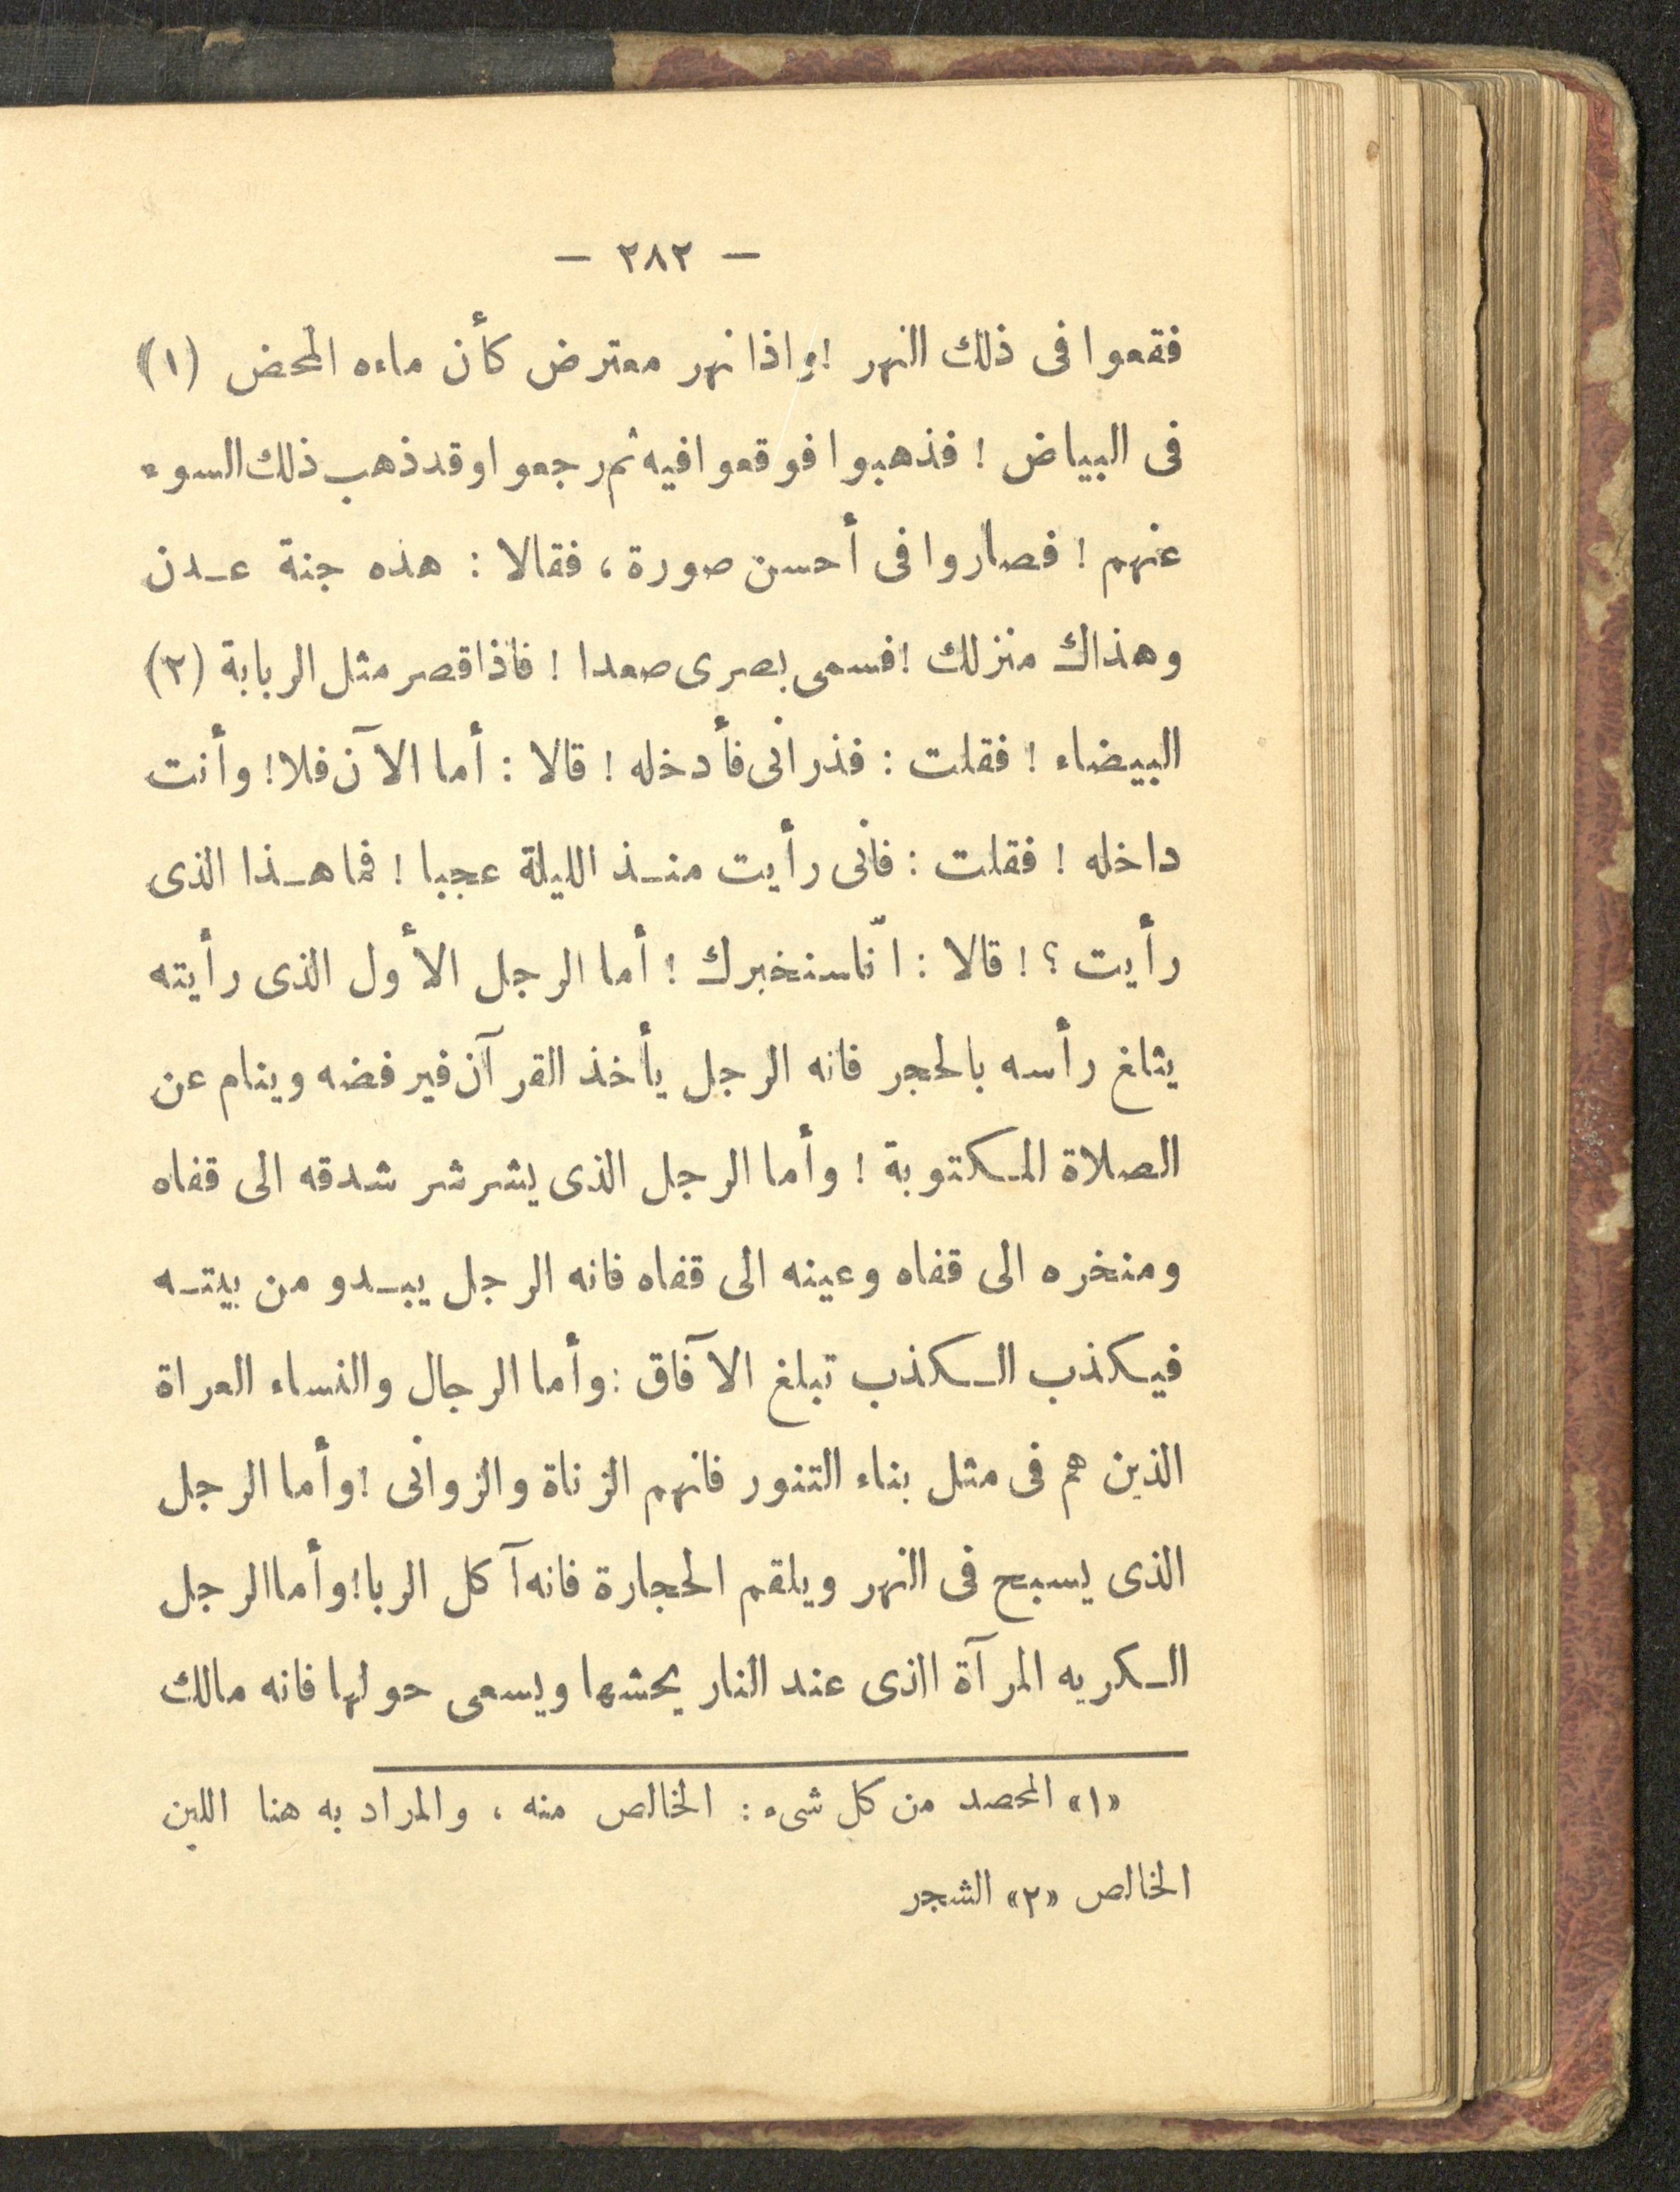 — ٢٨٢ —
فقعوا فى ذلك النهر ! واذا نهر معترض كأن ماءه المحض (١)
فى البياض ! فذهبوا فوقعوا فيه ثم رجعوا وقد ذهب ذلك السوء
عنهم ! فصاروا فى أحسن صورة ، فقالا : هذه جنة عدن
وهذاك منزلك ! فسمى بصرى صعدا ! فاذا قصر مثل الربابة (٢)
البيضاء ! فقلت : فذرانى فأدخله ! قالا : أما الآن فلا ! وأنت
داخله ! فقلت : فانى رأيت منذ الليلة عجبا ! فما هذا الذى
رأيت ؟ ! قالا : انّا سنخبرك ! أما الرجل الأول الذى رأيته
يثلغ رأسه بالحجر فانه الرجل يأخذ القرآن فيرفضه وينام عن
الصلاة المكتوبة ! وأما الرجل الذى يشرشر شدقه الى قفاه
ومنخره الى قفاه وعينه الى قفاه فانه الرجل يبدو من بيته
فيكذب الكذب تبلغ الآفاق : وأما الرجال والنساء العراة
الذين هم فى مثل بناء التنور فانهم الزناة والزوانى ! وأما الرجل
الذى يسبح فى النهر ويلقم الحجارة فانه آكل الربا ! وأما الرجل
الكريه المرآة الذى عند النار يحشها ويسعى حولها فانه مالك
«١» المحصد من كل شىء : الخالص منه ، والمراد به هنا اللبن
الخالص «٢» الشجر